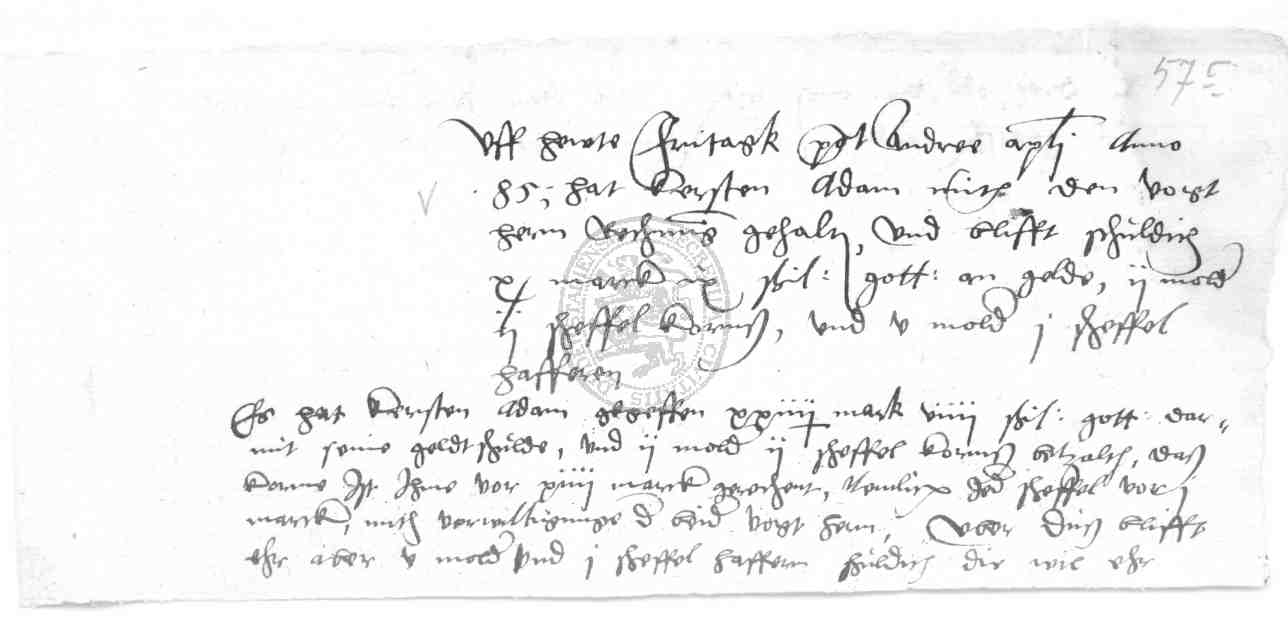 575
Uff hewte Fritagk post Andree apli Anno
85; hat Kersten Adam mith den vogt
herrn Rechnung gehalten, und blifft schuldich
x marck ix skil: gott: an gelde, ij mold
ij scheffel Kornß, und v mold j scheffel
hafferen
Es hat Kersten Adam gegeffen xxiiij mark viiij skil: gott: dar-
mit seine geldt schulde, und ij mold ij scheffel Kornß betzalth, daß
Korne Ist Ihme vor xiiij marck gerechent, Nemlich der scheffel vor j
marck, mith verwilligunge der beider vogt herrn, Uber duß blifft
ehr aber v mold und j scheffel haffern schuldich die wie ehr